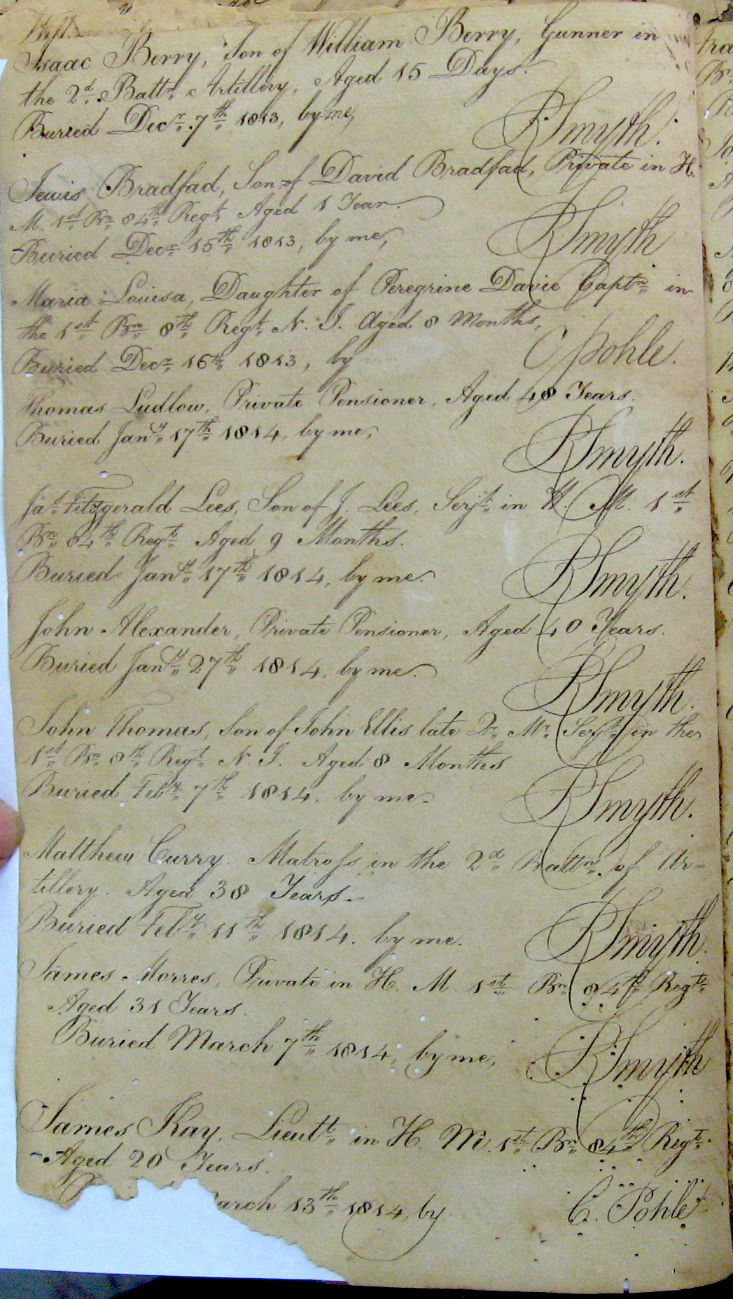 Isaac Berry, Son of William Berry, Gunner in
the 2d. Battn. Artillery, Aged 15 Days.
Buried Decr. 7th 1813, by me,
RSmyth.
Lewis Bradfad, Son of David Bradfad, Private in H.
M. 1st Bn 84th Regt. Aged 1 Year.
Buried Decr 15th 1813, by me,
RSmyth
Maria Louisa, Daughter of Peregrine Davie Captn in
the 1st Bn 8th Regt. N. I. Aged 8 Months,
Buried Decr 16th 1813, by
C Pohle.
Thomas Ludlow, Private Pensioner, Aged 48 Years.
Buried Jany 17th 1814, by me,
RSmyth.
Jas Fitzgerald Lees, Son of J. Lees, Serjt. in H. M. 1st
Bn 84th Regt. Aged 9 Months.
Buried Jany 17th 1814, by me.
RSmyth.
John Alexander, Private Pensioner, Aged 40 Years.
Buried Jany 27th 1814, by me.
RSmyth.
John Thomas, Son of John Ellis late Qr. Mr. Serjt. in the
1st Bn 8th Regt. N I. Aged 8 Months
Buried Feby 7th 1814, by me.
RSmyth.
Matthew Curry. Matross in the 2d Battn. of Ar-
tillery. Aged 38 Years.
Buried Feby 11th 1814. by me.
RSmyth.
James Morres, Private in H. M. 1st Bn 84th Regt.
Aged 31 Years.
Buried March 7th 1814, by me,
RSmyth
James Kay. Lieutt. in H. M. 1st Bn 84th Regt.
Aged 20 Years.
arch 13th 1814, by
C. Pohle